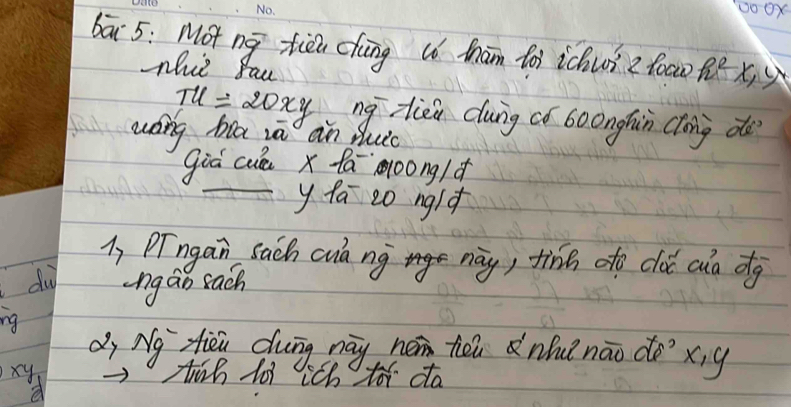 No.
bài 5: Một ng̃ tiêu dùng có hàm lợi ích với 2 loại h² x, y
như sau
TU = 20xy ng̃ tiêu dùng có 600 nghìn đồng để
uống bia và ăn mực
giá của x là 100 ng/đ
——— y là 20 ng/đ
1, PT ngân sách của ng̃ này, tính độ dốc của đg̃
ngân sách
2, Ng̃ tiêu dùng này nên tiêu như nào để x, y
→ tính lợi ích tối đa
ng
xy